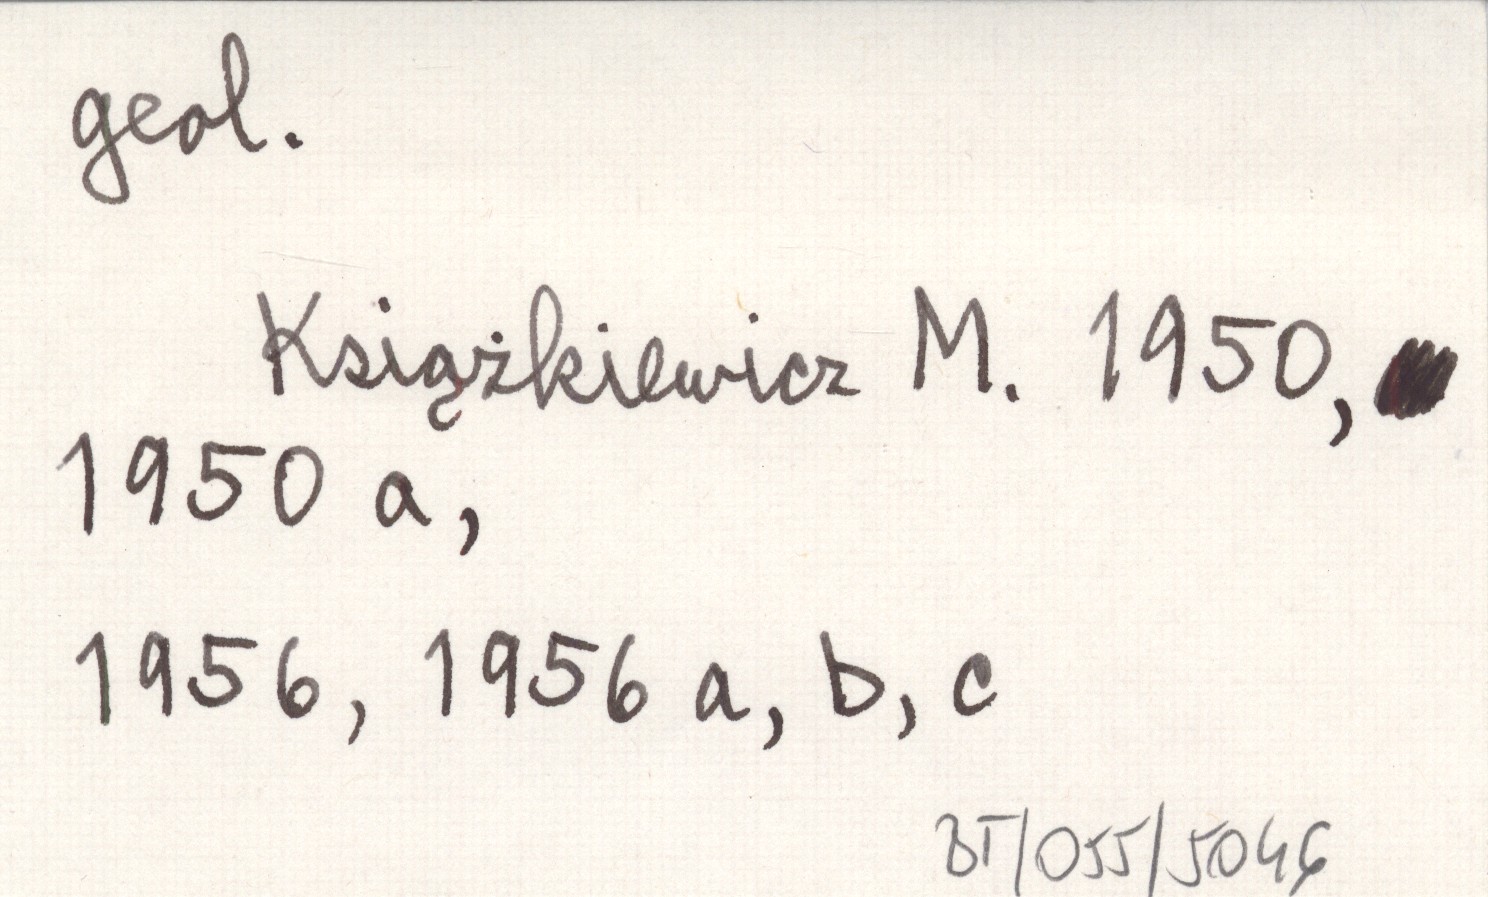 geol.
Książkiewicz M. 1950,
1950 a,
1956, 1956 a, b, c
BT/055/5046